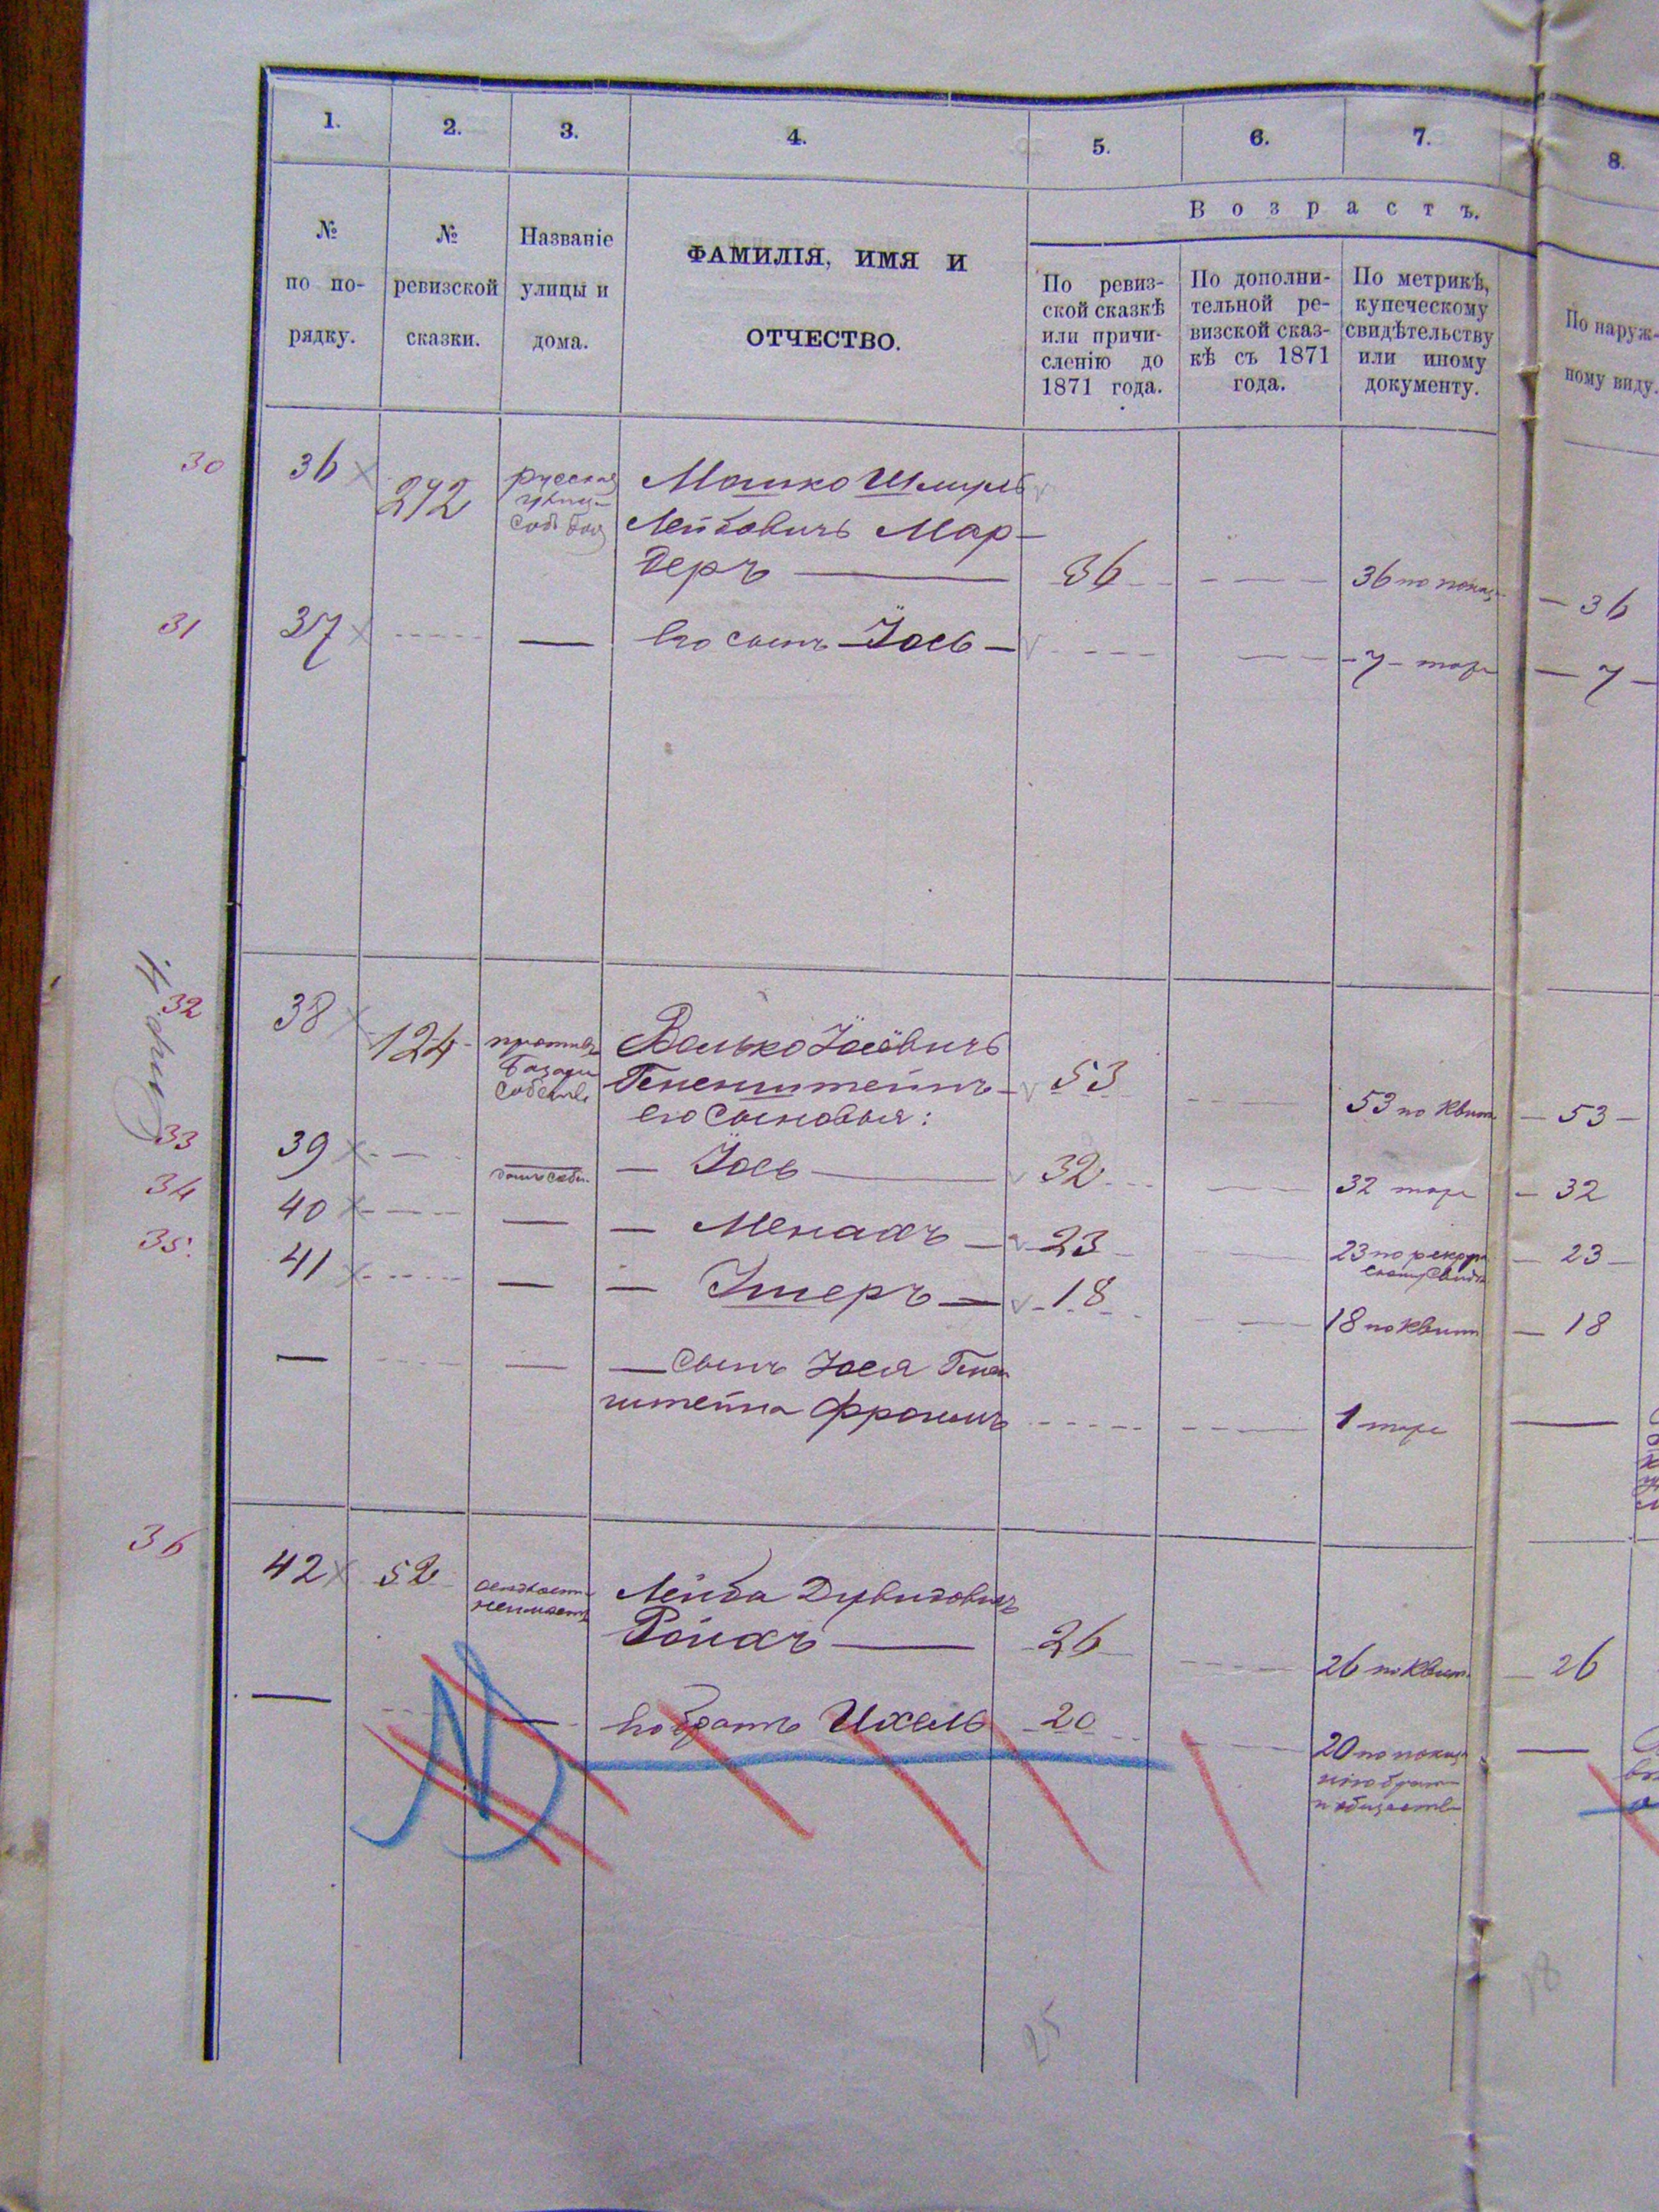 1. 2. 3. 4. 5. 6. 7. 8.
№ по по-рядку.
№ ревизской сказки.
Названіе улицы и дома.
ФАМИЛІЯ, ИМЯ И
ОТЧЕСТВО.
Возрастъ.
По ревиз-
ской сказкѣ
или причи-
сленію до
1871 года.
По дополни-
тельной ре-
визской сказ-
кѣ съ 1871
года.
По метрикѣ,
купеческому
свидѣтельству
или иному
документу.
По наруж-
ному виду.
30 36 292 русская Мошко Шмуль
Лейбовичъ Мар-
деръ 36 36 по 36
31 37 Его сынъ Іось 7 7
32 38 124 противъ Волько Іосевичъ
базара
Гененштейнъ 53 53 по квит. 53
его сыновья:
33 39 Іось 32 32 32
34 40 Менахъ 23 23 по 23
35. 41 Ушеръ 18 18 по квит 18
сынъ Іося Генен
штейна Фроимъ 1
36 42 52 Лейба Дувидовичъ
Ройхъ 26 26 по квит. 26
Его братъ Ихель 20 20 по
25
18